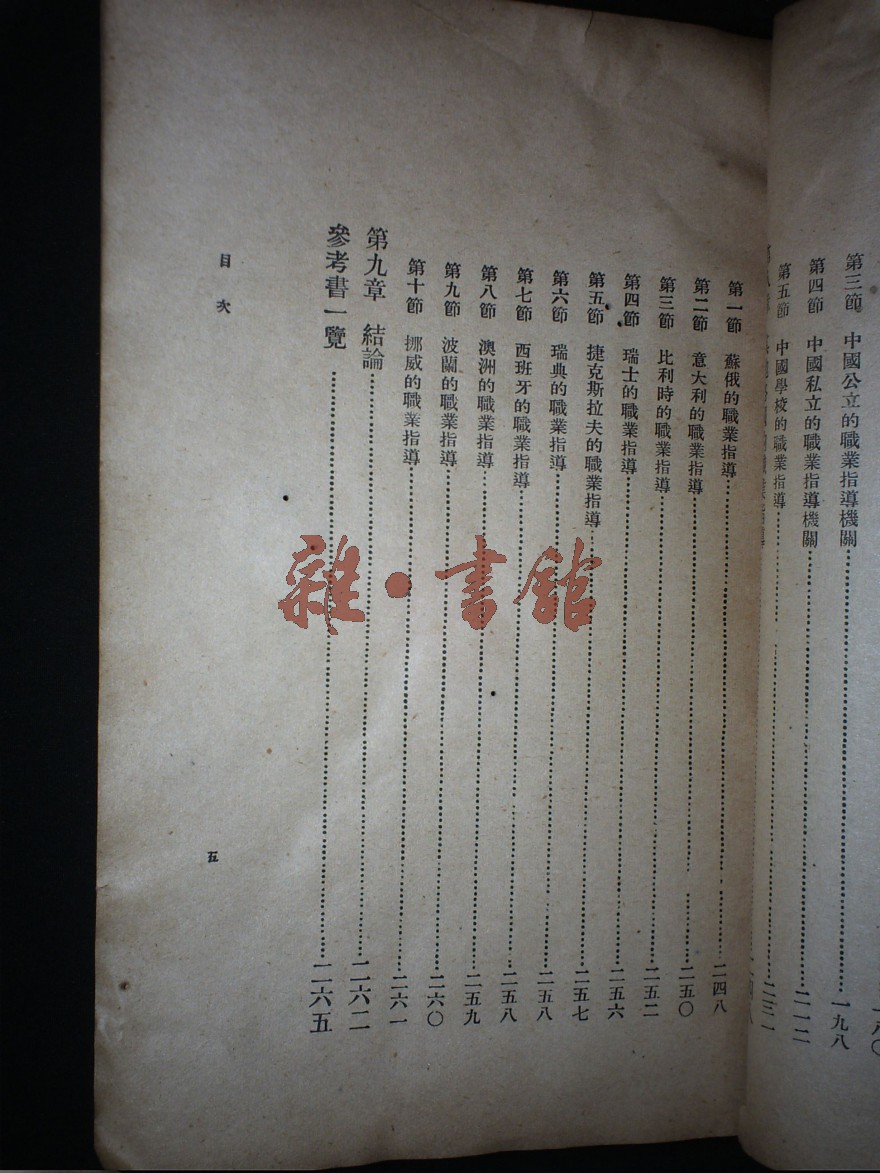 第三節　中國公立的職業指導機關……一九八
第四節　中國私立的職業指導機關……二一二
第五節　中國學校的職業指導……二三一
第一節　蘇俄的職業指導……二四八
第二節　意大利的職業指導……二五〇
第三節　比利時的職業指導……二五二
第四節　瑞士的職業指導……二五六
第五節　捷克斯拉夫的職業指導……二五七
第六節　瑞典的職業指導……二五八
第七節　西班牙的職業指導……二五八
第八節　澳洲的職業指導……二五九
第九節　波蘭的職業指導……二六〇
第十節　挪威的職業指導……二六一
第九章　結論……二六二
參考書一覽……二六五
目次
五
雜·書館